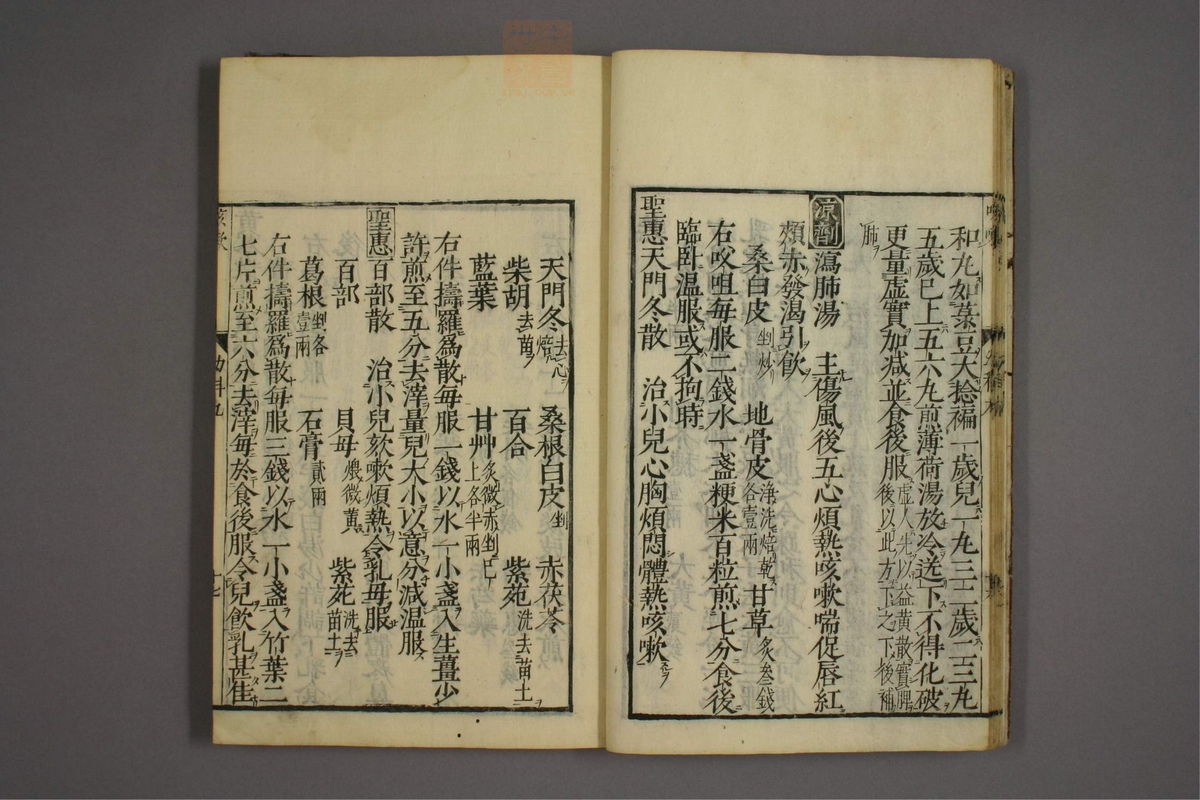 和丸如菉豆大捻褊一歲兒一丸三二歲一三丸
五歲已上五六丸煎薄荷湯放冷送下不得化破
更量虛實加減並食後服虛人先以益黃散實脾後以此方下之下後補
肺
凉劑 瀉肺湯 主傷風後五心煩熱咳嗽喘促唇紅
頰赤發渴引飲
桑白皮剉炒 地骨皮淨洗焙乾各壹兩 甘草炙叁錢
右㕮咀每服二錢水一盞粳米百粒煎七分食後
臨臥温服或不拘時
聖惠天門冬散 治小兒心胸煩悶體熱咳嗽
天門冬去心焙 桑根白皮剉 赤茯苓
柴胡去蘆 百合 紫菀洗去苗土
藍葉 甘艸炙微赤剉已上各半兩
右件擣羅爲散每服一錢以水一小盞入生薑少
許煎至五分去滓量兒大小以意分減温服
聖惠百部散 治小兒欬嗽煩熱令乳母服
百部 貝母煨微黃 紫菀洗去苗土
葛根剉各壹兩 石膏貳兩
右件擣羅爲散每服三錢以水一小盞入竹葉二
七片煎至六分去滓每於食後服令兒飲乳甚佳